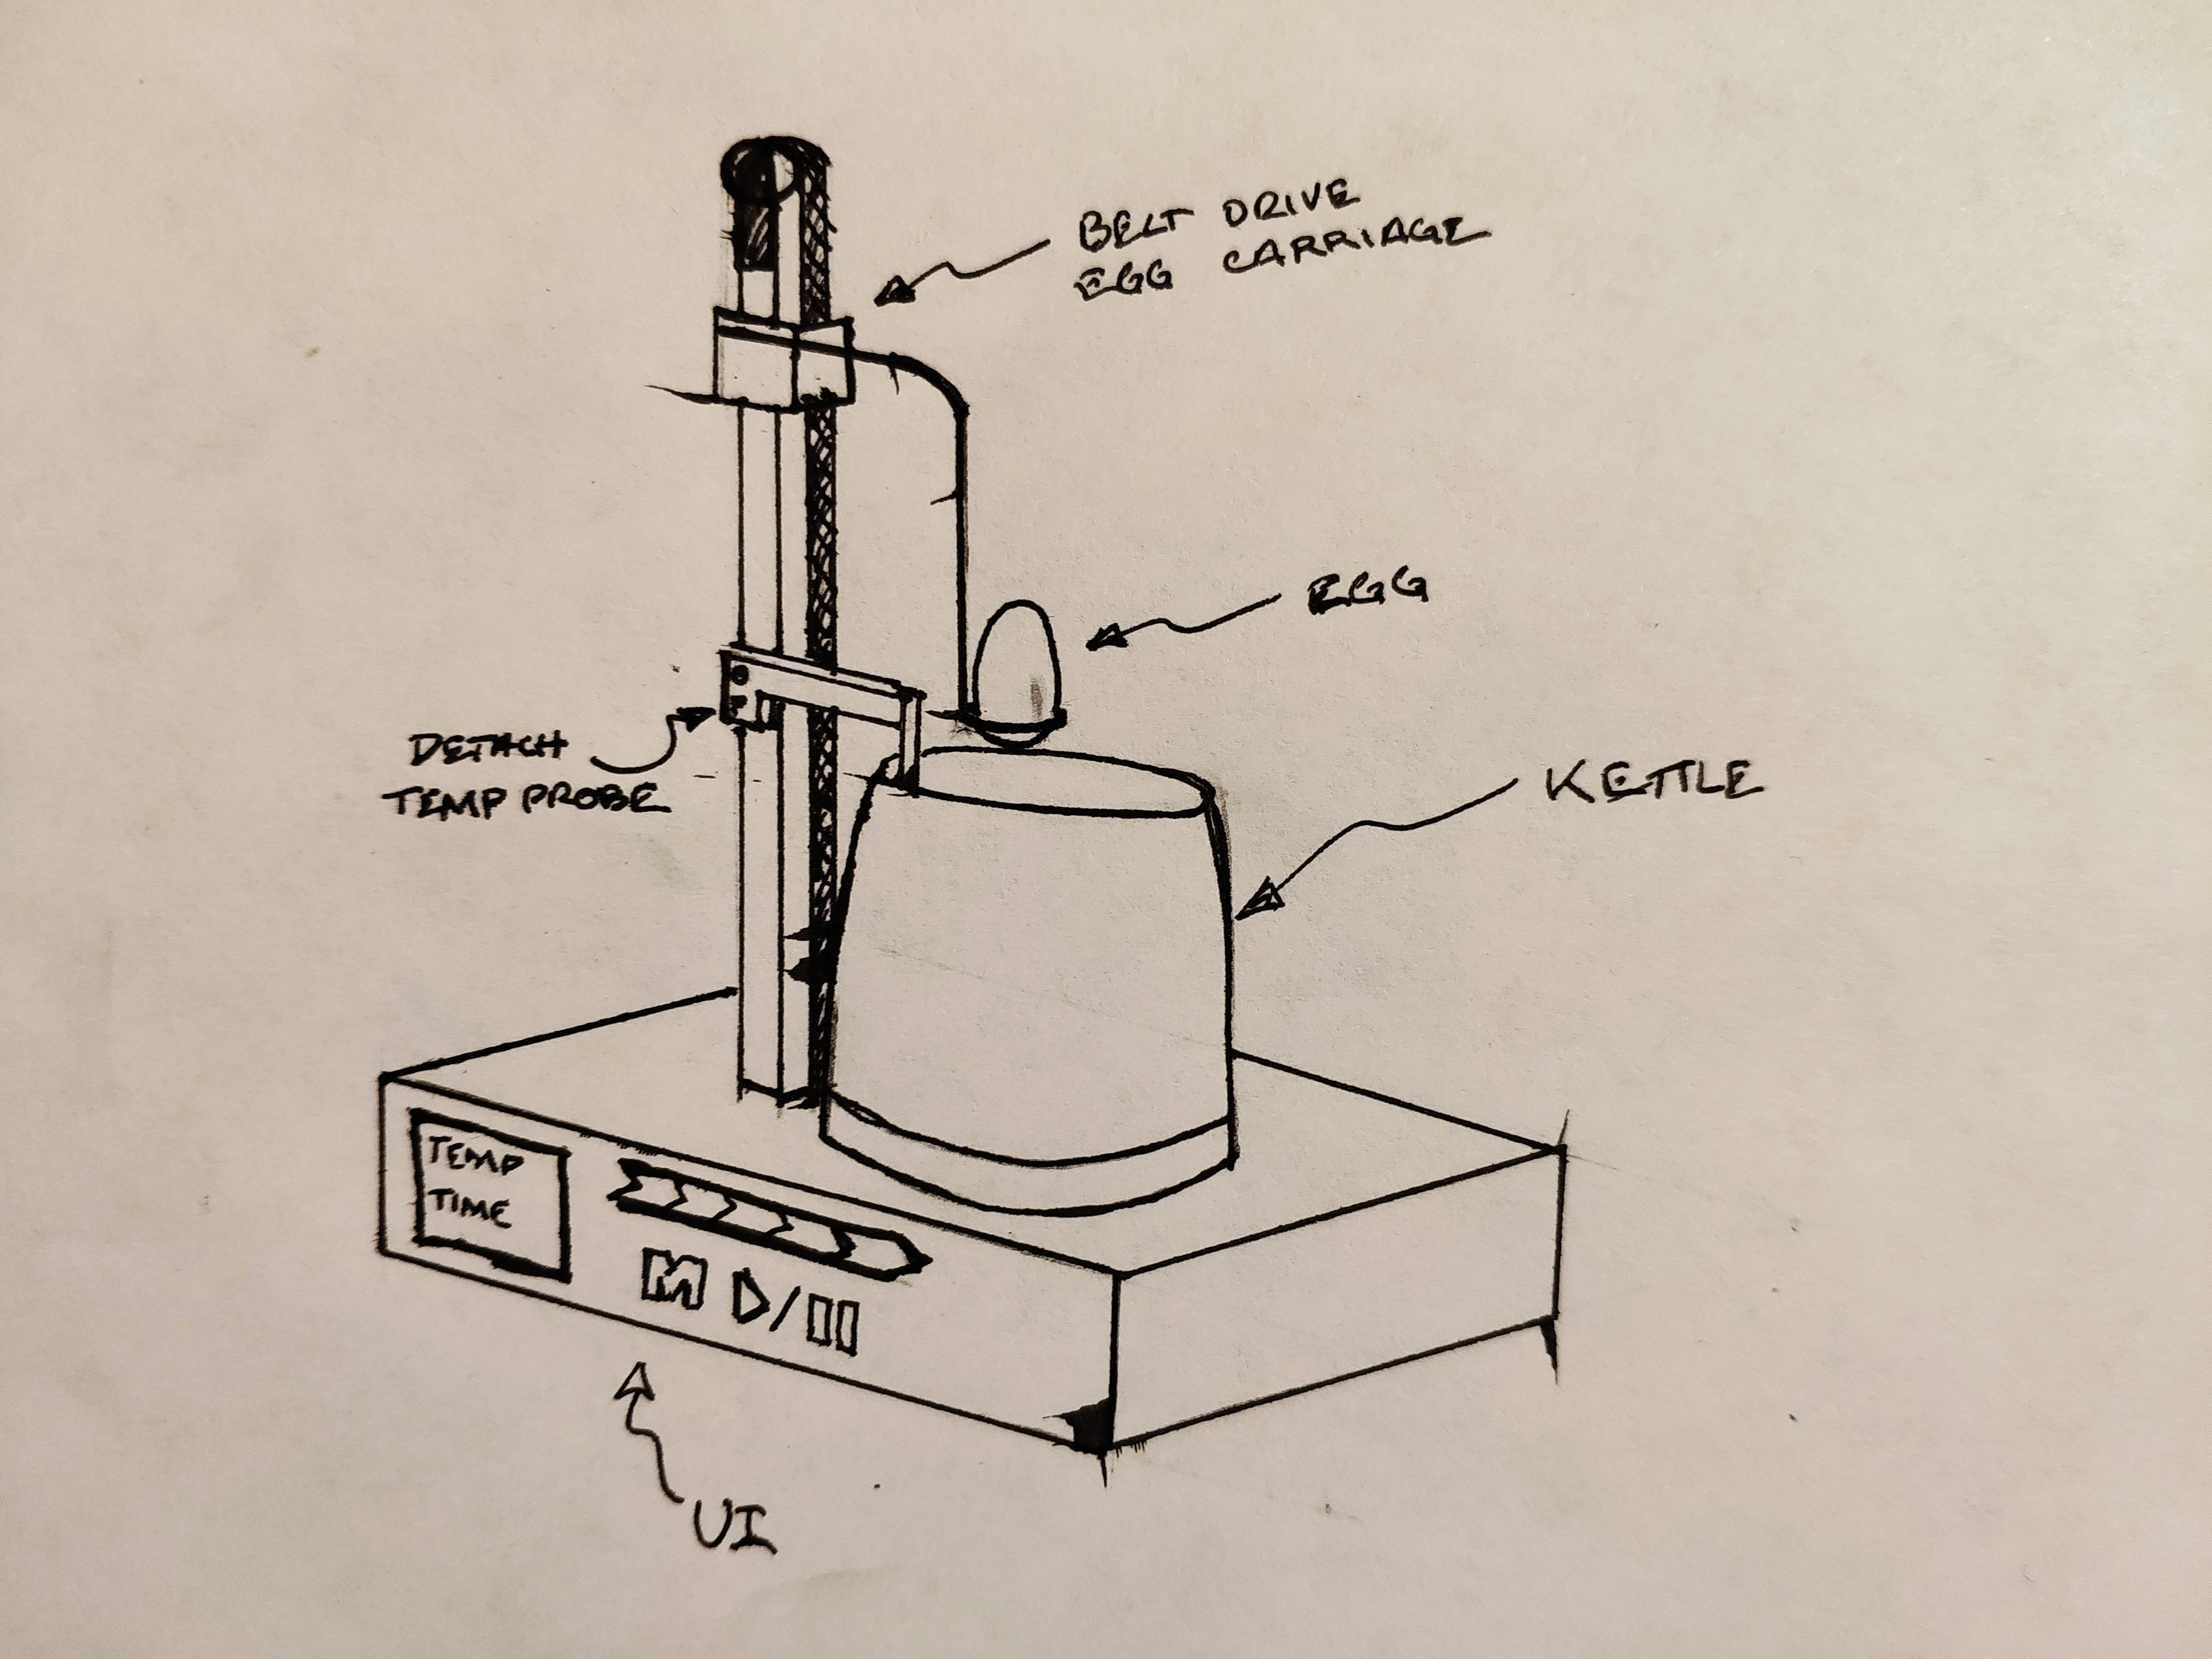 BELT DRIVE
EGG CARRIAGE
EGG
DETACH
TEMP PROBE
KETTLE
TEMP
TIME
M
UI